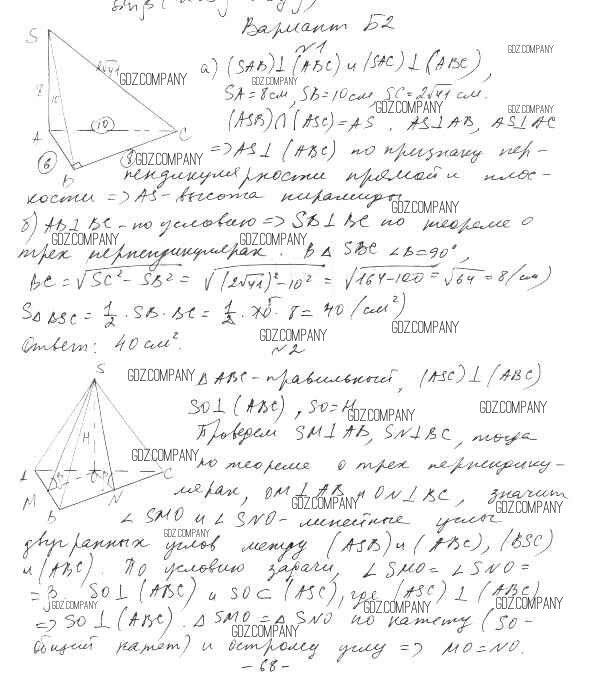 Вариант Б2
N1
а) (SAB)⊥(ABC) и (SAC)⊥(ABC),
SA=8см, SB=10см, SC=2√41 см.
(ASB)∩(ASC)=AS. AS⊥AB, AS⊥AC
⇒AS⊥(ABC) по признаку пер-
пендикулярности прямой и плос-
кости ⇒ AS-высота пирамиды
б) AB⊥BC-по условию ⇒ SB⊥BC по теореме о
трех перпендикулярах. В △SBC ∠B=90°,
BC=√SC²-SB² = √(2√41)²-10² = √164-100 = √64 = 8/(см)
S△BSC = 1/2 · SB · BC = 1/2 · 10 · 8 = 40 (см²)
Ответ: 40 см².
N2
△ABC-правильный, (ASC)⊥(ABC)
SO⊥(ABC), SO=H
Проведем SM⊥AB, SN⊥BC, тогда
по теореме о трех перпендику-
лярах, OM⊥AB и ON⊥BC, значит
∠SMO и ∠SNO-линейные углы
двугранных углов между (ASB) и (ABC), (BSC)
и (ABC). По условию задачи, ∠SMO=∠SNO=
=β. SO⊥(ABC) и SO⊂(ASC), где (ASC)⊥(ABC)
⇒ SO⊥(ABC). △SMO=△SNO по катету (SO-
общий катет) и острому углу ⇒ MO=NO.
-68-
S
A
B
C
8
10
2√41
10
6
8
S
A
B
C
M
N
O
H
β
β
GDZ.COMPANY